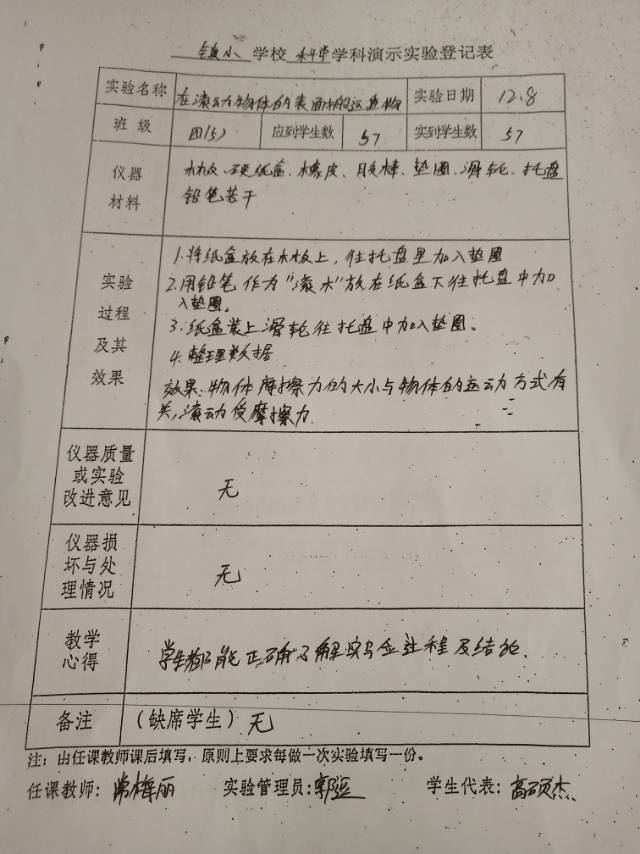 镇小 学校 科学 学科演示实验登记表
实验名称 在滚动物体的表面搬运重物 实验日期 12.8
班 级 四(5) 应到学生数 57 实到学生数 57
仪器材料 木板、硬纸盒、橡皮、胶棒、垫圈、滑轮、托盘
铅笔若干
实验过程及其效果
1.将纸盒放在木板上，往托盘里加入垫圈
2.用铅笔作为“滚木”放在纸盒下往托盘中加
入垫圈。
3.纸盒装上滑轮往托盘中加入垫圈。
4.整理数据
效果:物体摩擦力的大小与物体的运动方式有
关,滚动 摩擦力
仪器质量或实验改进意见 无
仪器损坏与处理情况 无
教学心得 学生都能正确了解实验过程及结论.
备注 (缺席学生) 无
注：由任课教师课后填写，原则上要求每做一次实验填写一份。
任课教师: 梅丽 实验管理员: 郭 学生代表: 高硕杰